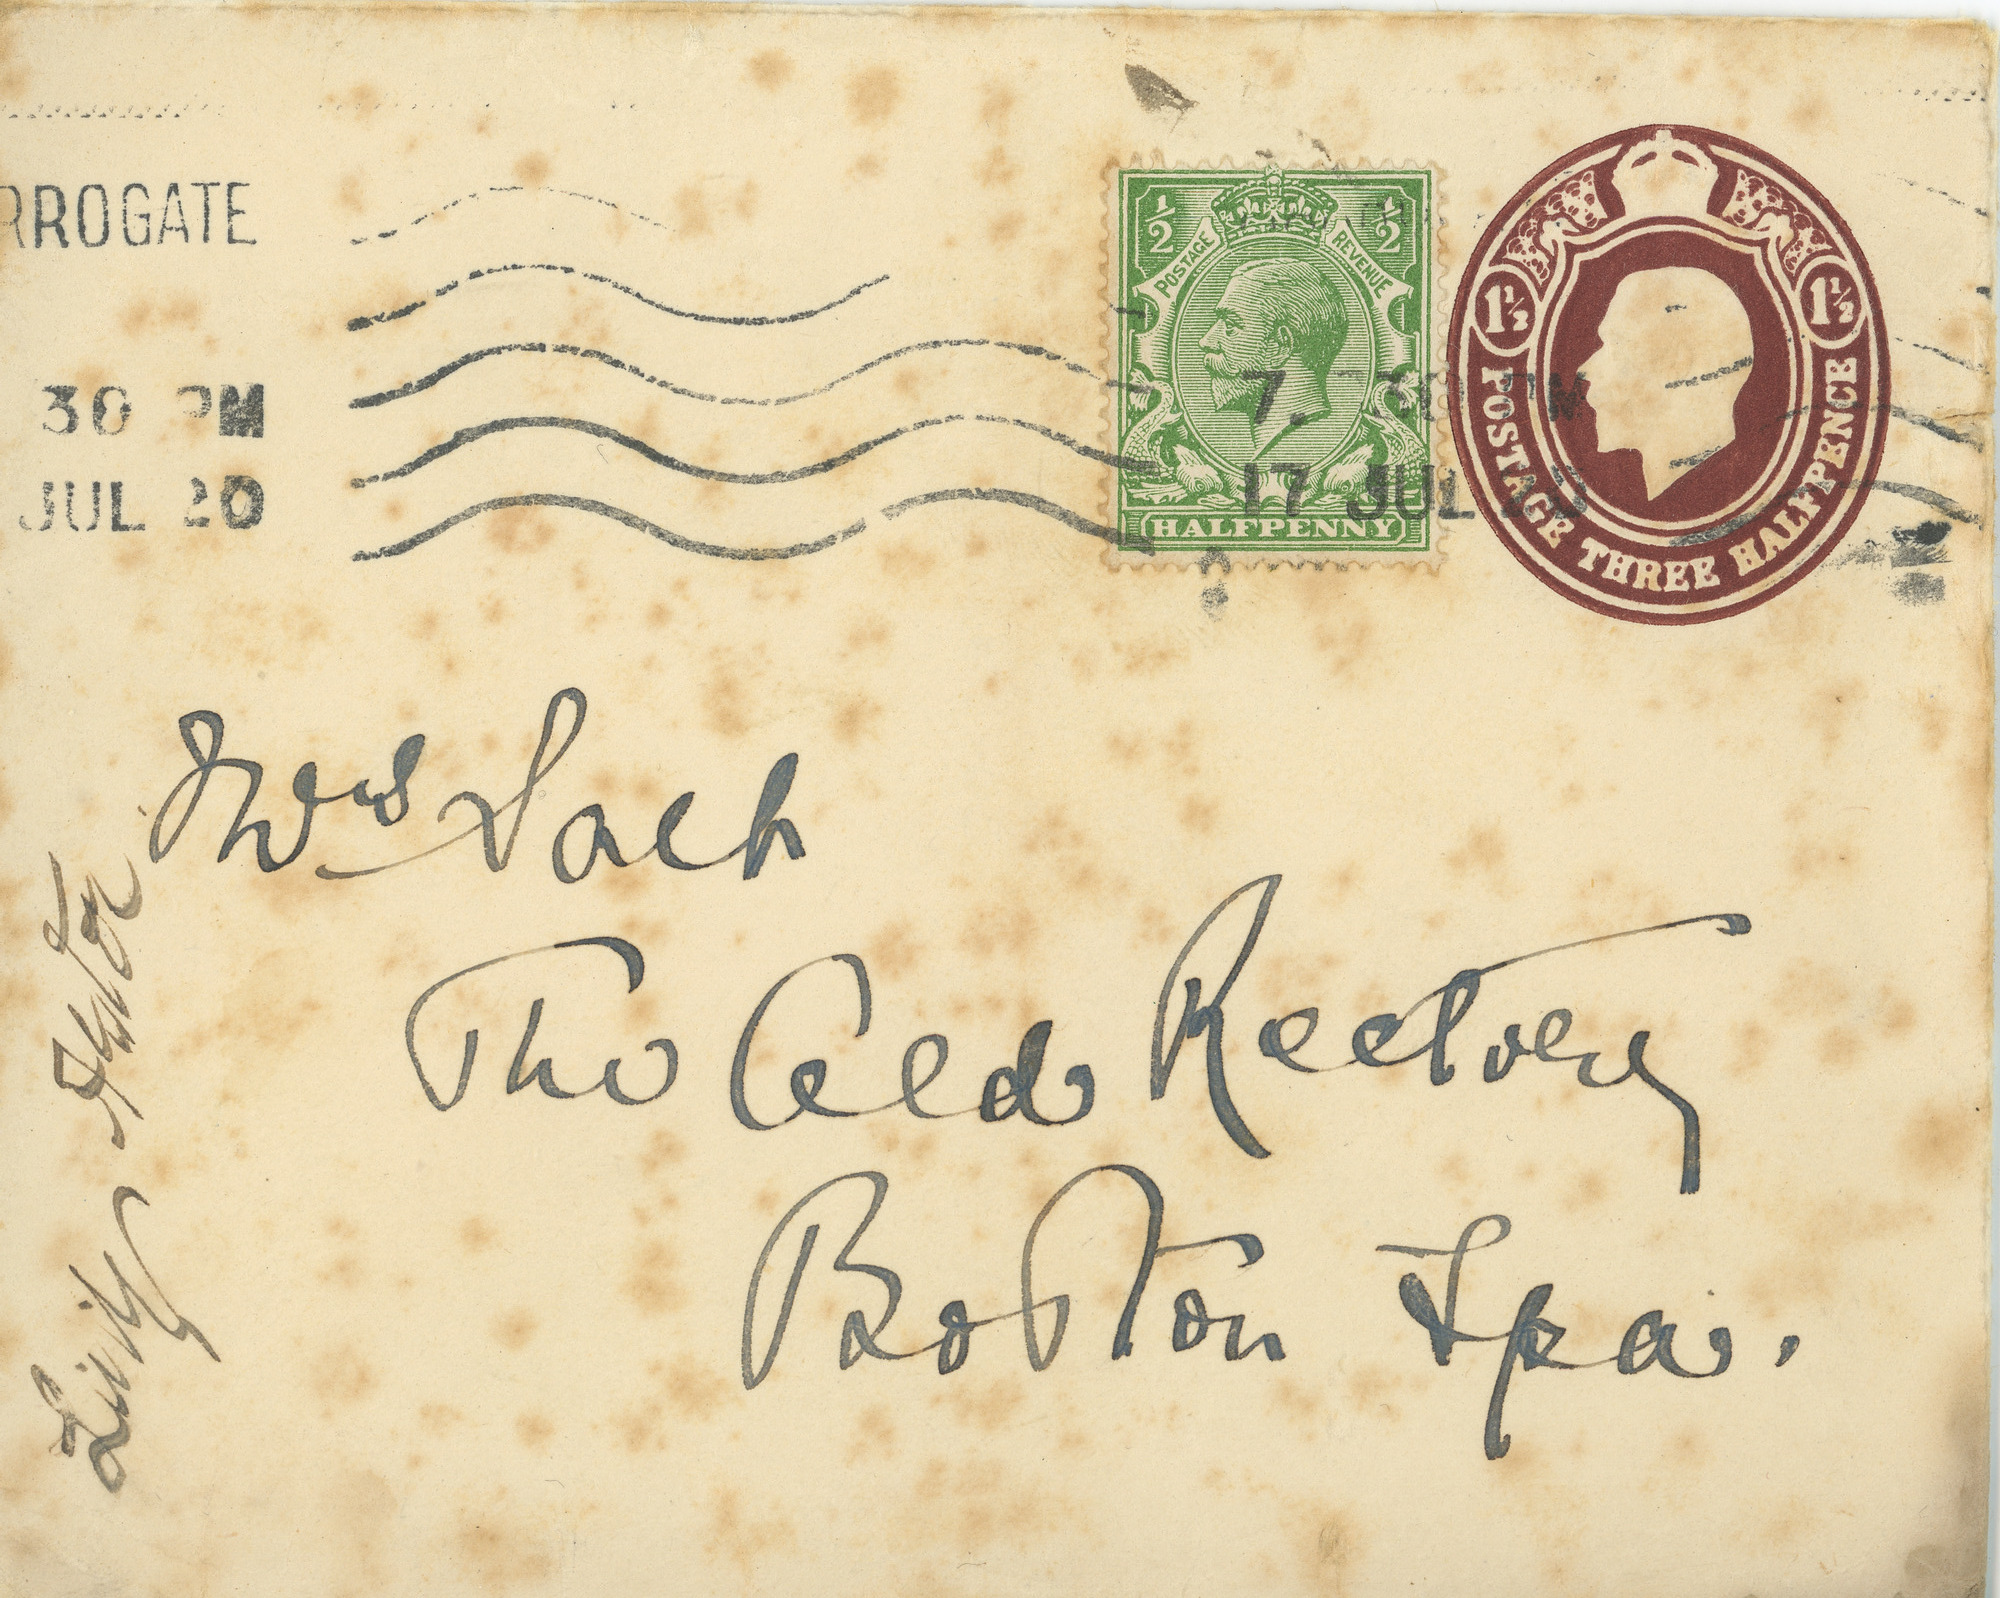 RROGATE
30 PM
JUL 20
1/2 1/2
POSTAGE REVENUE
HALFPENNY
7. 30 PM
17 JUL 20
1½ 1½
POSTAGE THREE HALFPENCE
Mrs
The Old Rectory
Boston Spa.
Astor